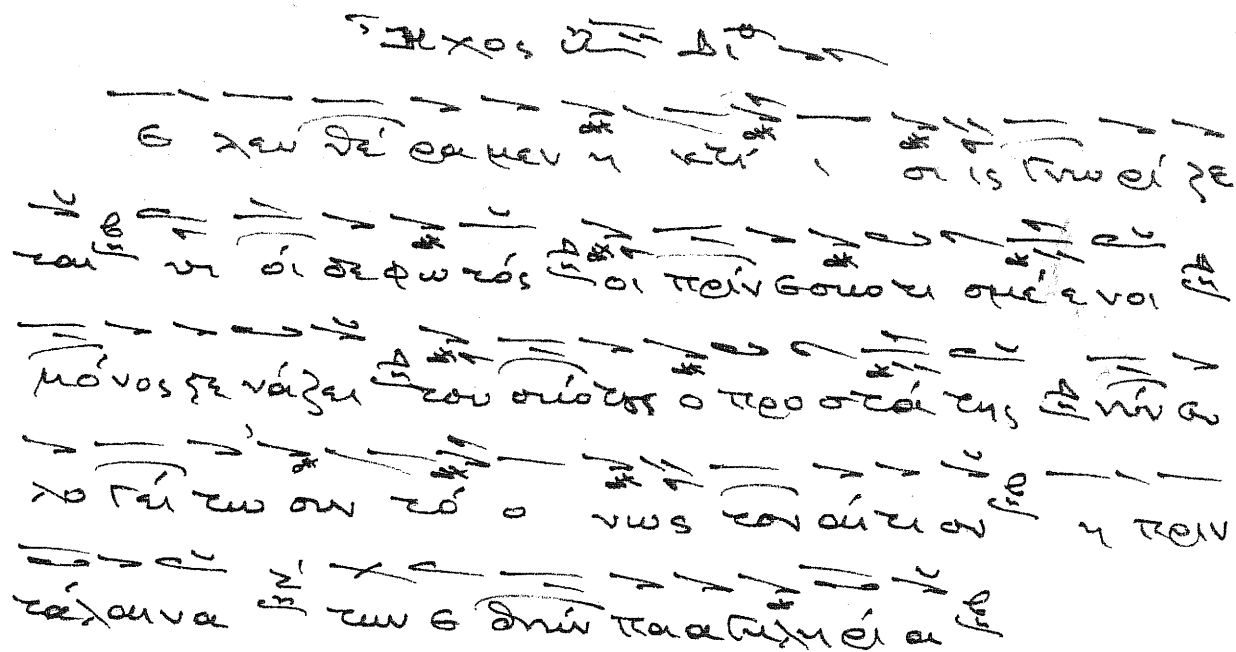 Ἦχος
Ε λευ θέ ρα μεν η κτί ι σις γνω ρί ζε
ται υι οί δε φω τός οι πρίν εσκοτι σμέ ε νοι
μόνος στε νάζει του σκότους ο προ στά της νύν ευ
λο γεί τω συν τό ο νως τον αί τι ον η πριν
τάλαινα των Ε θνών πα α γκλη ρί α